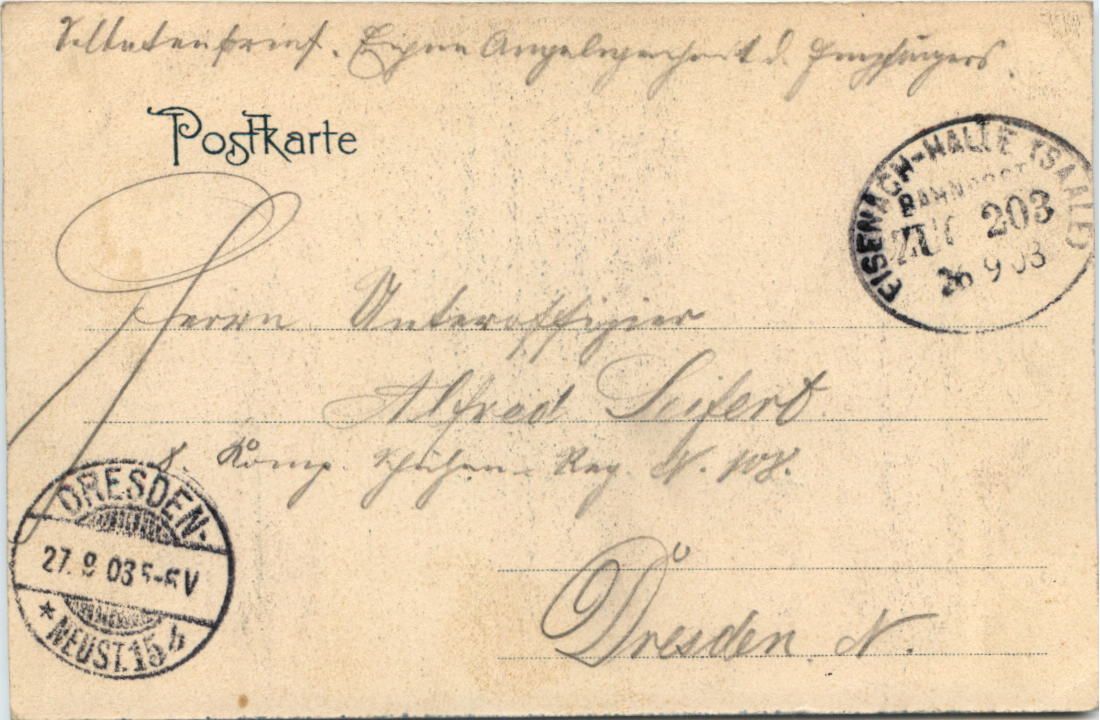 Soldatenbrief. Eigene Angelegenheit d. Empfängers.
Postkarte
EISENACH-HALLE (SAALE)
BAHNPOST
ZUG 203
26 9 03
Herrn Unteroffizier
Alfred Seifert
8. Komp. Schützen-Reg. N. 108.
Dresden. N.
DRESDEN-
27. 9 03 5-6 V
* NEUST. 15 b